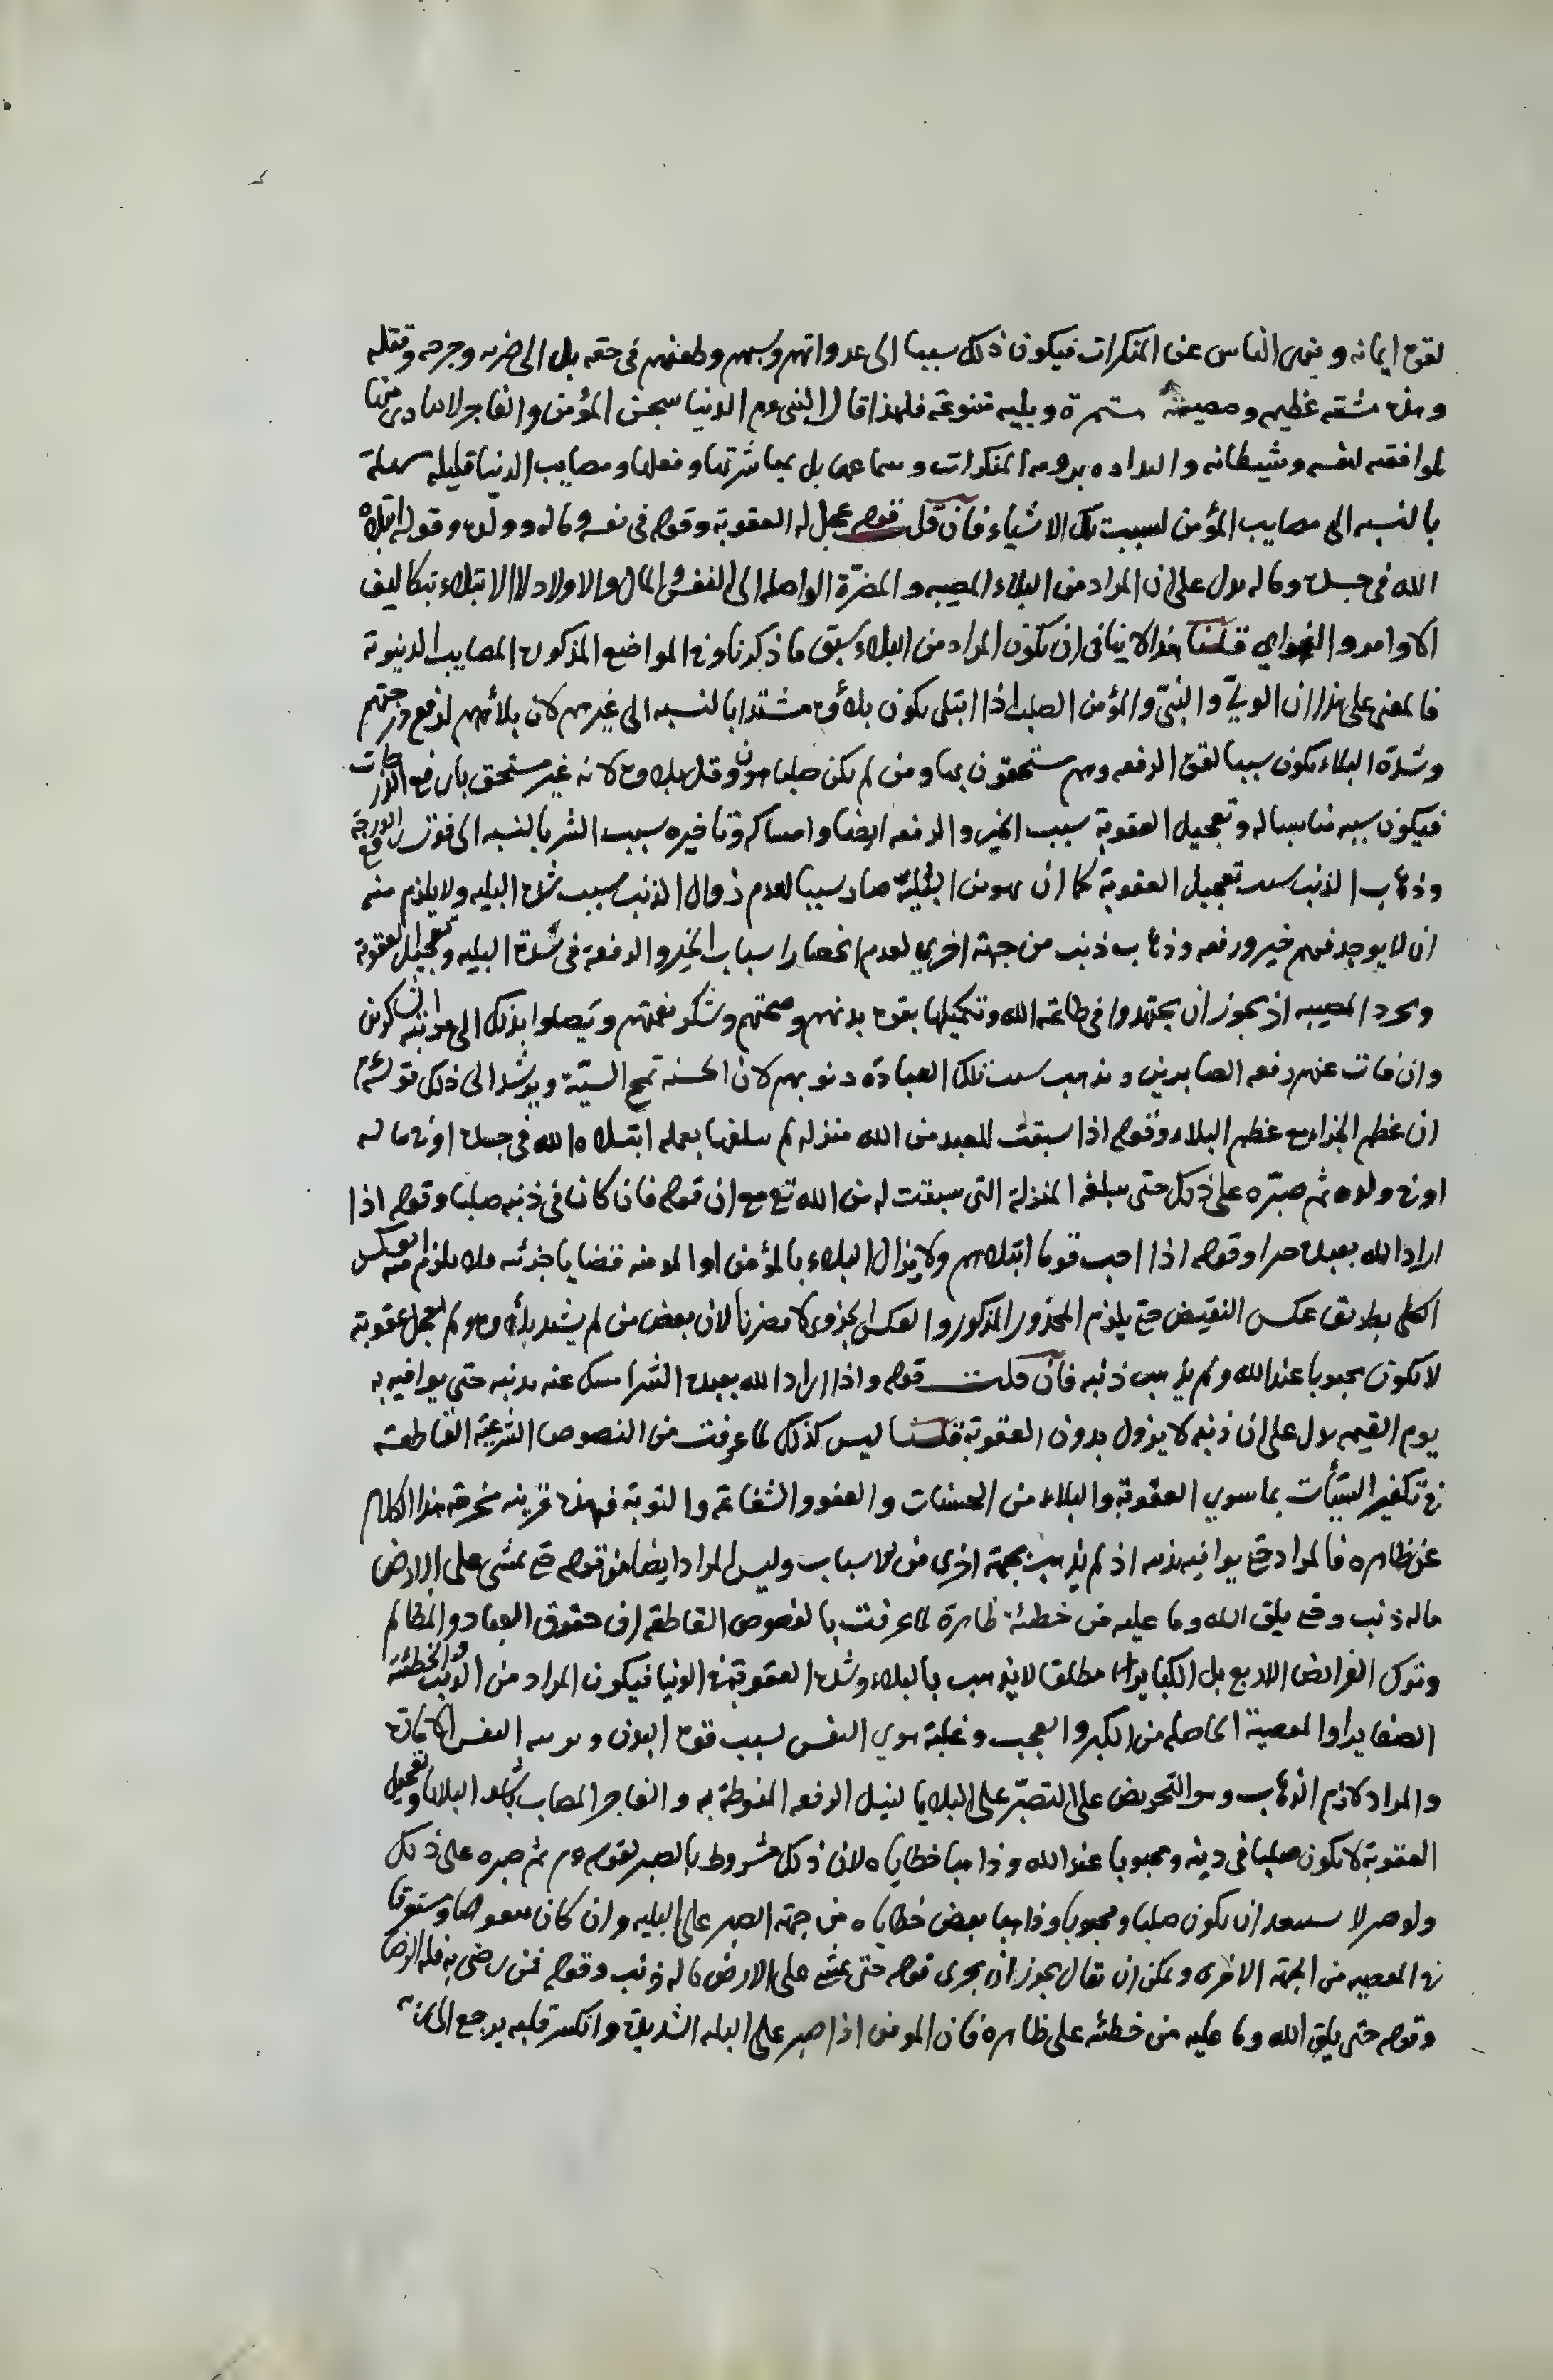 لقوة ايمانه وينهى الناس عن المنكرات فيكون ذلك سببا الى عدواتهم وسبهم وطعنهم في حقه بل الى ضربه وجرحه وقتله
وهذه مشقة عظيمه ومصيبة مستمرة وبليه متنوعة فلهذا قال النبى عم الدنيا سجن المؤمن والفاجر لا يتأذى منها
لموافقته لنفسه وشيطانه والتذاذه برؤية المنكرات وسماعها بل بمباشرتها وفعلها ومصايب الدنيا قليلة سهلة
بالنسبه الى مصايب المؤمن لسبب تلك الاشياء فان قلت قوله عجل له العقوبة وقوله في نفسه وماله وولده وقوله ابتلاه
الله في جسده وماله يدل على ان المراد من البلاء المصيبه والمضرّة الواصله الى النفس والمال والاولاد لا الابتلاء بتكاليف
الاوامر والنواهي قلنا هذا لا ينافى ان يكون المراد من البلاء سبق ما ذكرنا وفي المواضع المذكورة المصايب الدنيوية
فالمعنى على هذا ان الوليّ والنبيّ والمؤمن الصلب اذا ابتلى يكون بلاؤه مشتدا بالنسبه الى غيرهم لان بلائهم لرفع درجتهم
وشدة البلاء تكون سببا لقوة الرفعه وهم مستحقون بها ومن لم يكن صلبا هون وقلل بلاؤه لانه غير مستحق بارفع الدرجات
فيكون سببه مناسبا له وتعجيل العقوبة سبب الخير والرفعه ايضا وامساكه وتاخيره سبب الشر بالنسبه الى فوت رفع الدرجة
وذهاب الذنب بسبب تعجيل العقوبة كما ان تهوين البليّة صار سببا لعدم زوال الذنب بسبب شدة البليه ولا يلزم منه
ان لا يوجد فيهم خير ورفعه وذهاب ذنب من جهة اخرى لعدم انحصار اسباب الخير والرفعة في شدة البليه وتعجيل العقوبة
ومجرد المصيبه اذ يجوز ان يجتهدوا في طاعة الله وتكميلها بقوة بدنهم وصحتهم وشكر نعمتهم ويصلوا بذلك الى مراتب الشاكرين
وان فات عنهم رفعه الصابرين ويذهب بسبب تلك العبادة ذنوبهم لان الحسنه تمح السيّئة ويرشد الى ذلك قوله عم
ان عظم الجزاء مع عظم البلاء وقوله اذا سبقت للعبد من الله منزله لم يبلغها بعمله ابتلاه الله في جسده او في ماله
او في ولده ثم صبّره على ذلك حتى يبلغه المنزلة التى سبقت له من الله تع مع ان قوله فان كان في دينه صلبا وقوله اذا
اراد الله بعبده خيرا وقوله اذا احب قوما ابتلاهم ولا يزال البلاء بالمؤمن او المومنه قضايا جزئيه فلا يلزم منه العكس
الكلى بطريق عكس النقيض حتى يلزم المحذور المذكور والعكس الجزوى لا يضرنا لان بعض من لم يشتد بلاؤه ولم يعجل عقوبته
لا يكون محبوبا عند الله ولم يذهب ذنبه فان قلت قوله واذا اراد الله بعبده الشر امسك عنه بذنبه حتى يوافيه به
يوم القيمه يدل على ان ذنبه لا يزول بدون العقوبة قلنا ليس كذلك لما عرفت من النصوص الشرعية القاطعة
في تكفير السيّأت بما سوى العقوبة والبلاء من الحسنات والعفو والشفاعة والتوبة فهذه قرينه مخرجة هذا الكلام
عن ظاهره فالمراد حتى يوافيه بذنبه اذ لم يذهب بجهة اخرى من الاسباب وليس المراد ايضا من قوله حتى يمشى على الارض
ماله ذنب وحتى يلق الله وما عليه من خطئة ظاهرة لما عرفت بالنصوص القاطعة ان حقوق العباد والمظالم
وترك الفرايض الاربع بل الكباير مطلقا لا يذهب بالبلاء وشدة العقوبة في الدنيا فيكون المراد من الذنب والخطئة
الصغاير او المعصية الحاصله من الكبر والعجب وغلبة هوى النفس لسبب قوة البدن و النفس الامارة
والمراد لازم الذهاب وهو التحريض على التصبّر على البلايا لنيل الرفعه المنوطة به والفاجر المصاب بشدايد البلايا وتعجيل
العقوبة لا يكون صلبا في دينه ومحبوبا عند الله وذاهبا خطاياه لان ذلك مشروط بالصبر لقوله عم ثم صبره على ذلك
ولو صبر لا يستبعد ان يكون صلبا ومحبوبا وذاهبا بعض خطاياه من جهة الصبر على البليه وان كان
في المعصيه من الجهة الاخرى ويمكن ان يقال يجوز ان يجرى قوله حتى يمشى على الارض ماله ذنب وقوله فمن رضى به فله الرضا
وقوله حتى يلق الله وما عليه من خطئه على ظاهره فان المومن اذا صبر على البليه الشديدة وانكسر قلبه يرجع الى